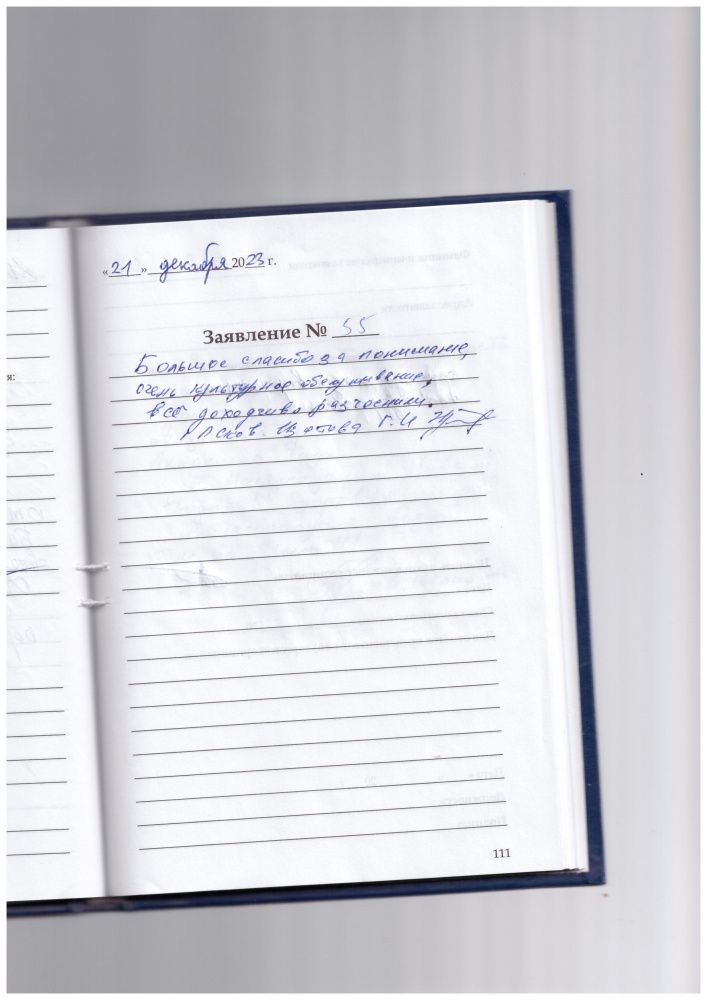 « 21 » декабря 2023 г.
Заявление № 55
Большое спасибо за понимание,
очень культурное обслуживание,
всё доходчиво разъяснили.
г Псков Г.И
я:
111